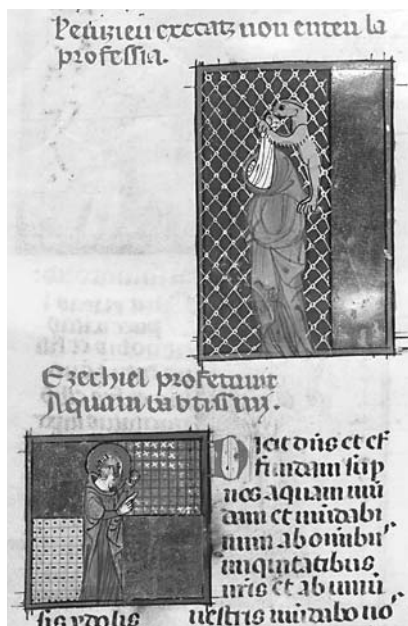 Peruzieu exccatz non enten la
professia.
Ezechiel profetavit
Aquam babtissmi.
Dicit dns et ef
fundam sup
vos aquam mu
dam et mudabi
mini ab omnibus
iniquitatibus
vris et ab univ
sis ydolis vestris mundabo vo